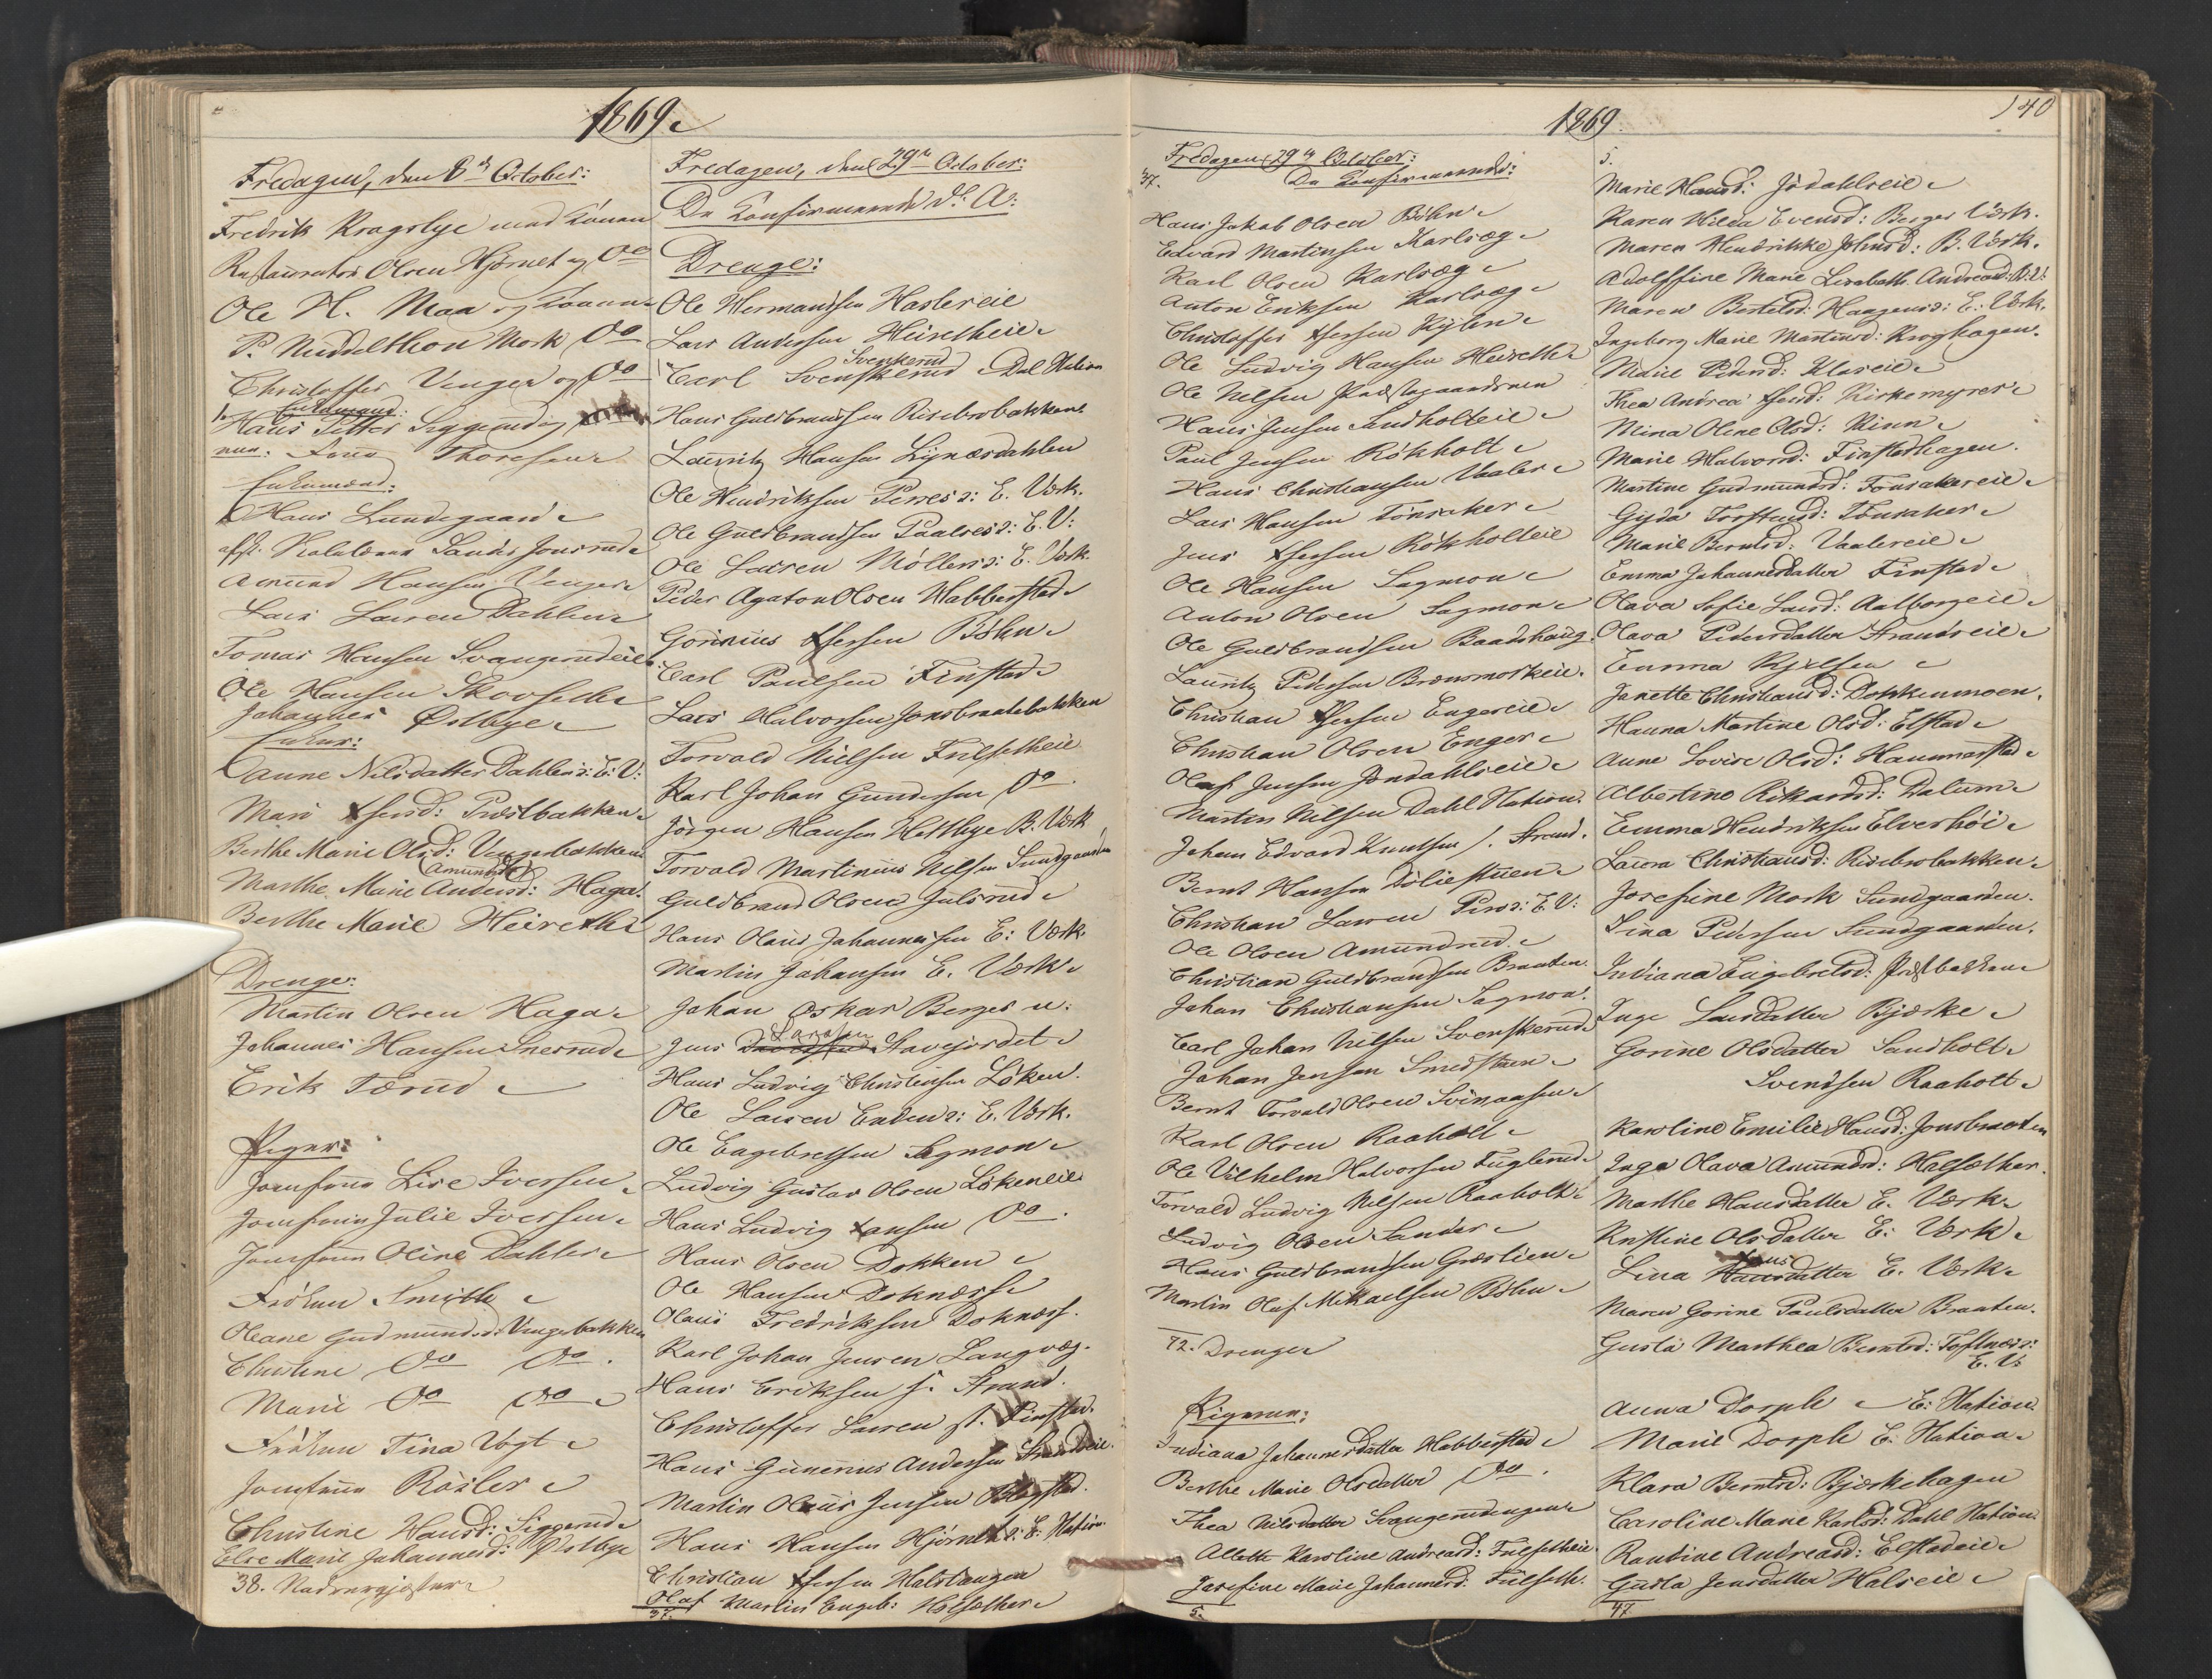 1869
Fredagen, den 8de October:
Fredrik Kragslye med Konen
Restauratör Olsen Hjörnet og Do
Ole H. Maa og Konen
P. Middelthon Mork Do
Christoffer Venger og Do
1. Enkemand:
Hans Petter Siggerud og
Jens Thoresen
Enkemænd:
Hans Lundsgaard
Amund Hansen Venger
Lars Larsen Dahlen
Tomas Hansen Svangerudeie
Ole Hansen Skovseth
Johannes Østbye
Enker:
Anne Nilsdatter Dahlen s: E: V:
Mari Xfersd: Præstbakken
Berthe Marie Olsd: Vengerbakken
Amundsd
Marthe Marie Andersd: Haga
Berthe Marie Heireth
Drenge:
Martin Olsen Haga
Johannes Hansen Snesrud
Erik Tærud
Piger:
Jomfru Lise Iversen
Jomfru Julie Iversen
Jomfru Oline Dahler
Fröken Smith
Oleane Gudmundsd: Vengerbakken
Christine Do Do.
Marie Do Do
Fröken Tina Vogt
Jomfru Rösler
Christine Hansd: Siggerud
Else Marie Johannesd: Østbye
38. Nadvergjæster
Fredagen, den 29de October:
De Konfirmerede d: A:
Drenge:
Ole Hermandsen Haslereie
Lars Andersen Heiretheie
Svenkerud
Carl Svenskerud Dal Station
Hans Guldbrandsen Risebrobakken
Lauritz Hansen Lysnæsdahlen
Ole Hendriksen Perres s: E. Værk.
Ole Guldbrandsen Paalses s: E. V:
Ole Larsen Möllers s: E. Værk.
Peder Agaton Olsen Habberstad
Gorinius Xfersen Böhn
Carl Paulsen Finstad
Lars Halvorsen Jonsbraatebakken
Torvald Nielsen Fulsetheie
Karl Johan Gundersen Do.
Jörgen Hansen Hellbye B. Værk
Torvald Martinius Nilsen Sundgaarden
Guldbrand Olsen Julsrud
Hans Olaus Johannessen E: Værk.
Martin Johansen E. Værk
Johan Oskar Berger u:
Larsen
Jens Stavejordet
Hans Ludvig Christensen Löken.
Ole Larsen Enden s: E. Værk.
Ole Engebretsen Sagmon
Ludvig Gustav Olsen Lökeneie
Hans Ludvig Hansen Do.
Hans Olsen Dokken
Ole Hansen Doknæss
Olaus Fredriksen Doknæss.
Karl Johan Jensen Langvæg.
Hans Eriksen s. Strand.
Christoffer Larsen st. Finstad.
Hans Gunerius Andersen Strandeie.
Martin Olaus Jensen Blegstad.
Hans Hansen Hjörnet s: E: Station
Christian Xfersen Halstangen
Olaf Martin Engeb: Holsæther
37.
1869
140
Fredagen 29de October:
37. De Konfirmerede:
Hans Jakob Olsen Böhn
Edvard Martinsen Karlsæg
Karl Olsen Karlsæg
Anton Eriksen Karlsæg
Christoffer Xfersen Kylen
Ole Ludvig Hansen Heireth
Ole Nilsen Præstegaardsmen
Hans Jensen Sandholteie
Paul Jensen Rökholt
Hans Christiansen Vaaler
Lars Hansen Tönsaker
Jens Xfersen Rökholteie
Ole Hansen Sagmon
Anton Olsen Sagmon
Ole Guldbrandsen Baadshaug.
Lauritz Pedersen Brensmorkeie.
Christian Xfersen Engereie
Christian Olsen Enger
Olaf Jensen Jondahlseie
Martin Nilsen Dahl Station.
Johan Edvard Knutsen s. Strand.
Bernt Hansen Döliestuen
Christian Larsen Pers s: E. V:
Ole Olsen Amundrud.
Christian Guldbrandsen Braaten.
Johan Christiansen Sagmon.
Carl Johan Nilsen Svenskerud
Johan Jensen Smedstuen
Bernt Torvald Olsen Svinaasen
Karl Olsen Raaholt
Ole Vilhelm Halvorsen Fuglerud
Torvald Ludvig Nilsen Raaholt
Ludvig Olsen Sander
Hans Guldbrandsen Græslien
Martin Olaf Mikaelsen Böhn
72. Drenge
Pigerne:
Indiana Johannesdatter Habberstad
Berthe Marie Olsdatter Do.
Thea Nilsdatter Svangerudengen
Allette Karoline Andreasd: Fulsetheie.
Josefine Marie Johannesd: Fulseth.
5.
5.
Marie Hansd: Jödahlseie
Karen Hilda Evensd: Berger Værk.
Maren Hendrikke Johnsd: B. Værk.
Adolffine Marie Lisabeth Andreasd: B. V.
Maren Bertelsd: Haagens s: E. Værk.
Ingeborg Marie Martinsd: Kroghagen.
Marie Pedersd: Klæseie
Thea Andrea Xfersd: Kirkemyrer
Mina Oline Olsd: Rinn
Marie Halvorsd: Finstadhagen.
Martine Gudmundsd: Tönsakereie
Gyda Torstensd: Tönsaker
Marie Berntsd: Vaalereie
Emma Johannesdatter Finstad
Olava Sofie Larsd: Aalborgeie
Olava Pedersdatter Strandseie
Emma Kjelsen
Janette Christiansd: Dokkenmoen.
Hanna Martine Olsd: Elstad
Anne Lovise Olsd: Hammerstad
Albertine Rikardsd: Dalum
Emma Hendriksen Elverhöi
Laura Christiansd: Risebrobakken
Josefine Mork Sundgaarden.
Lina Pedersen Sundgaarden.
Indiana Engebretsd: Præstbakken
Inge Larsdatter Bjærke
Gorine Olsdatter Sandholt
Svendsen Raaholt
Karoline Emilie Hansd: Jonsbraaten
Inga Olava Amundsd: Halsæther.
Marthe Hansdatter E. Værk
Kristine Olsdatter E: Værk
Jens
Lina Hansdatter E. Værk
Maren Gorine Paulsdatter Braaten.
Gusta Marthea Berntsd: Tofsnæs s:
E. V.
Anna Dorph E: Station
Marie Dorph E. Station
Klara Berntsd: Bjerkehagen
Caroline Marie Karlsd: Dahl Station
Randine Andreasd: Elstadeie
Gusta Jensdatter Halseie
47